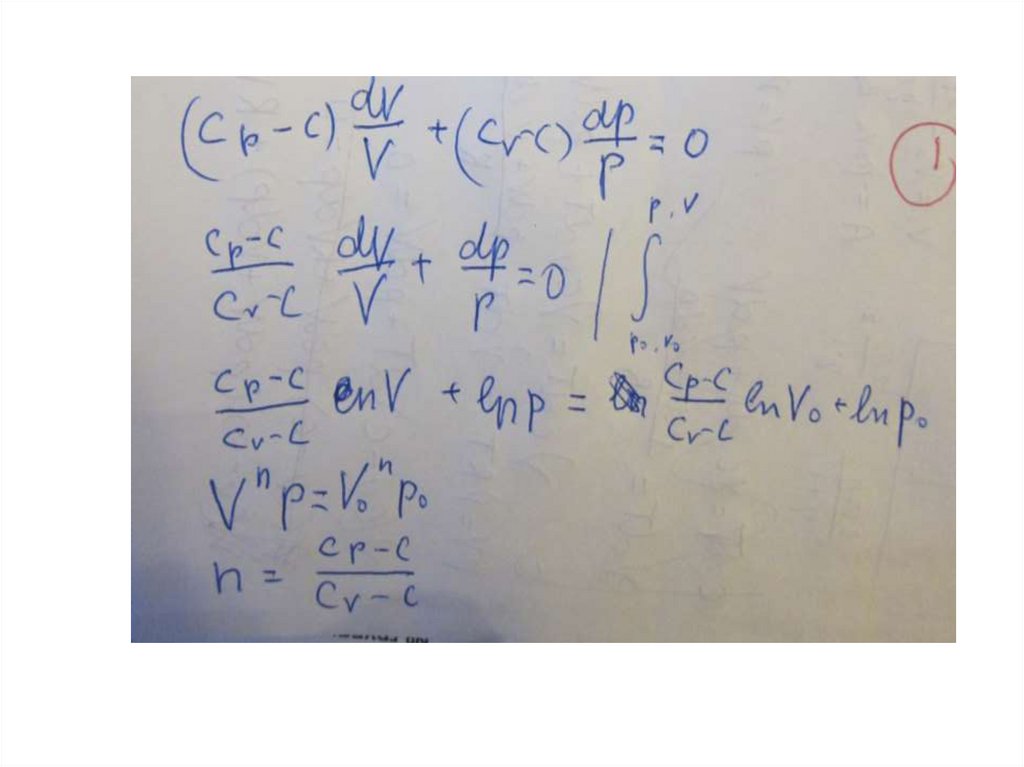 (Cp-C) dV/V + (Cv-C) dp/p = 0
1
(Cp-C)/(Cv-C) dV/V + dp/p = 0 | ∫_{p₀,V₀}^{p,V}
(Cp-C)/(Cv-C) lnV + lnp = (Cp-C)/(Cv-C) lnV₀ + lnp₀
Vⁿp = V₀ⁿp₀
n = (Cp-C)/(Cv-C)